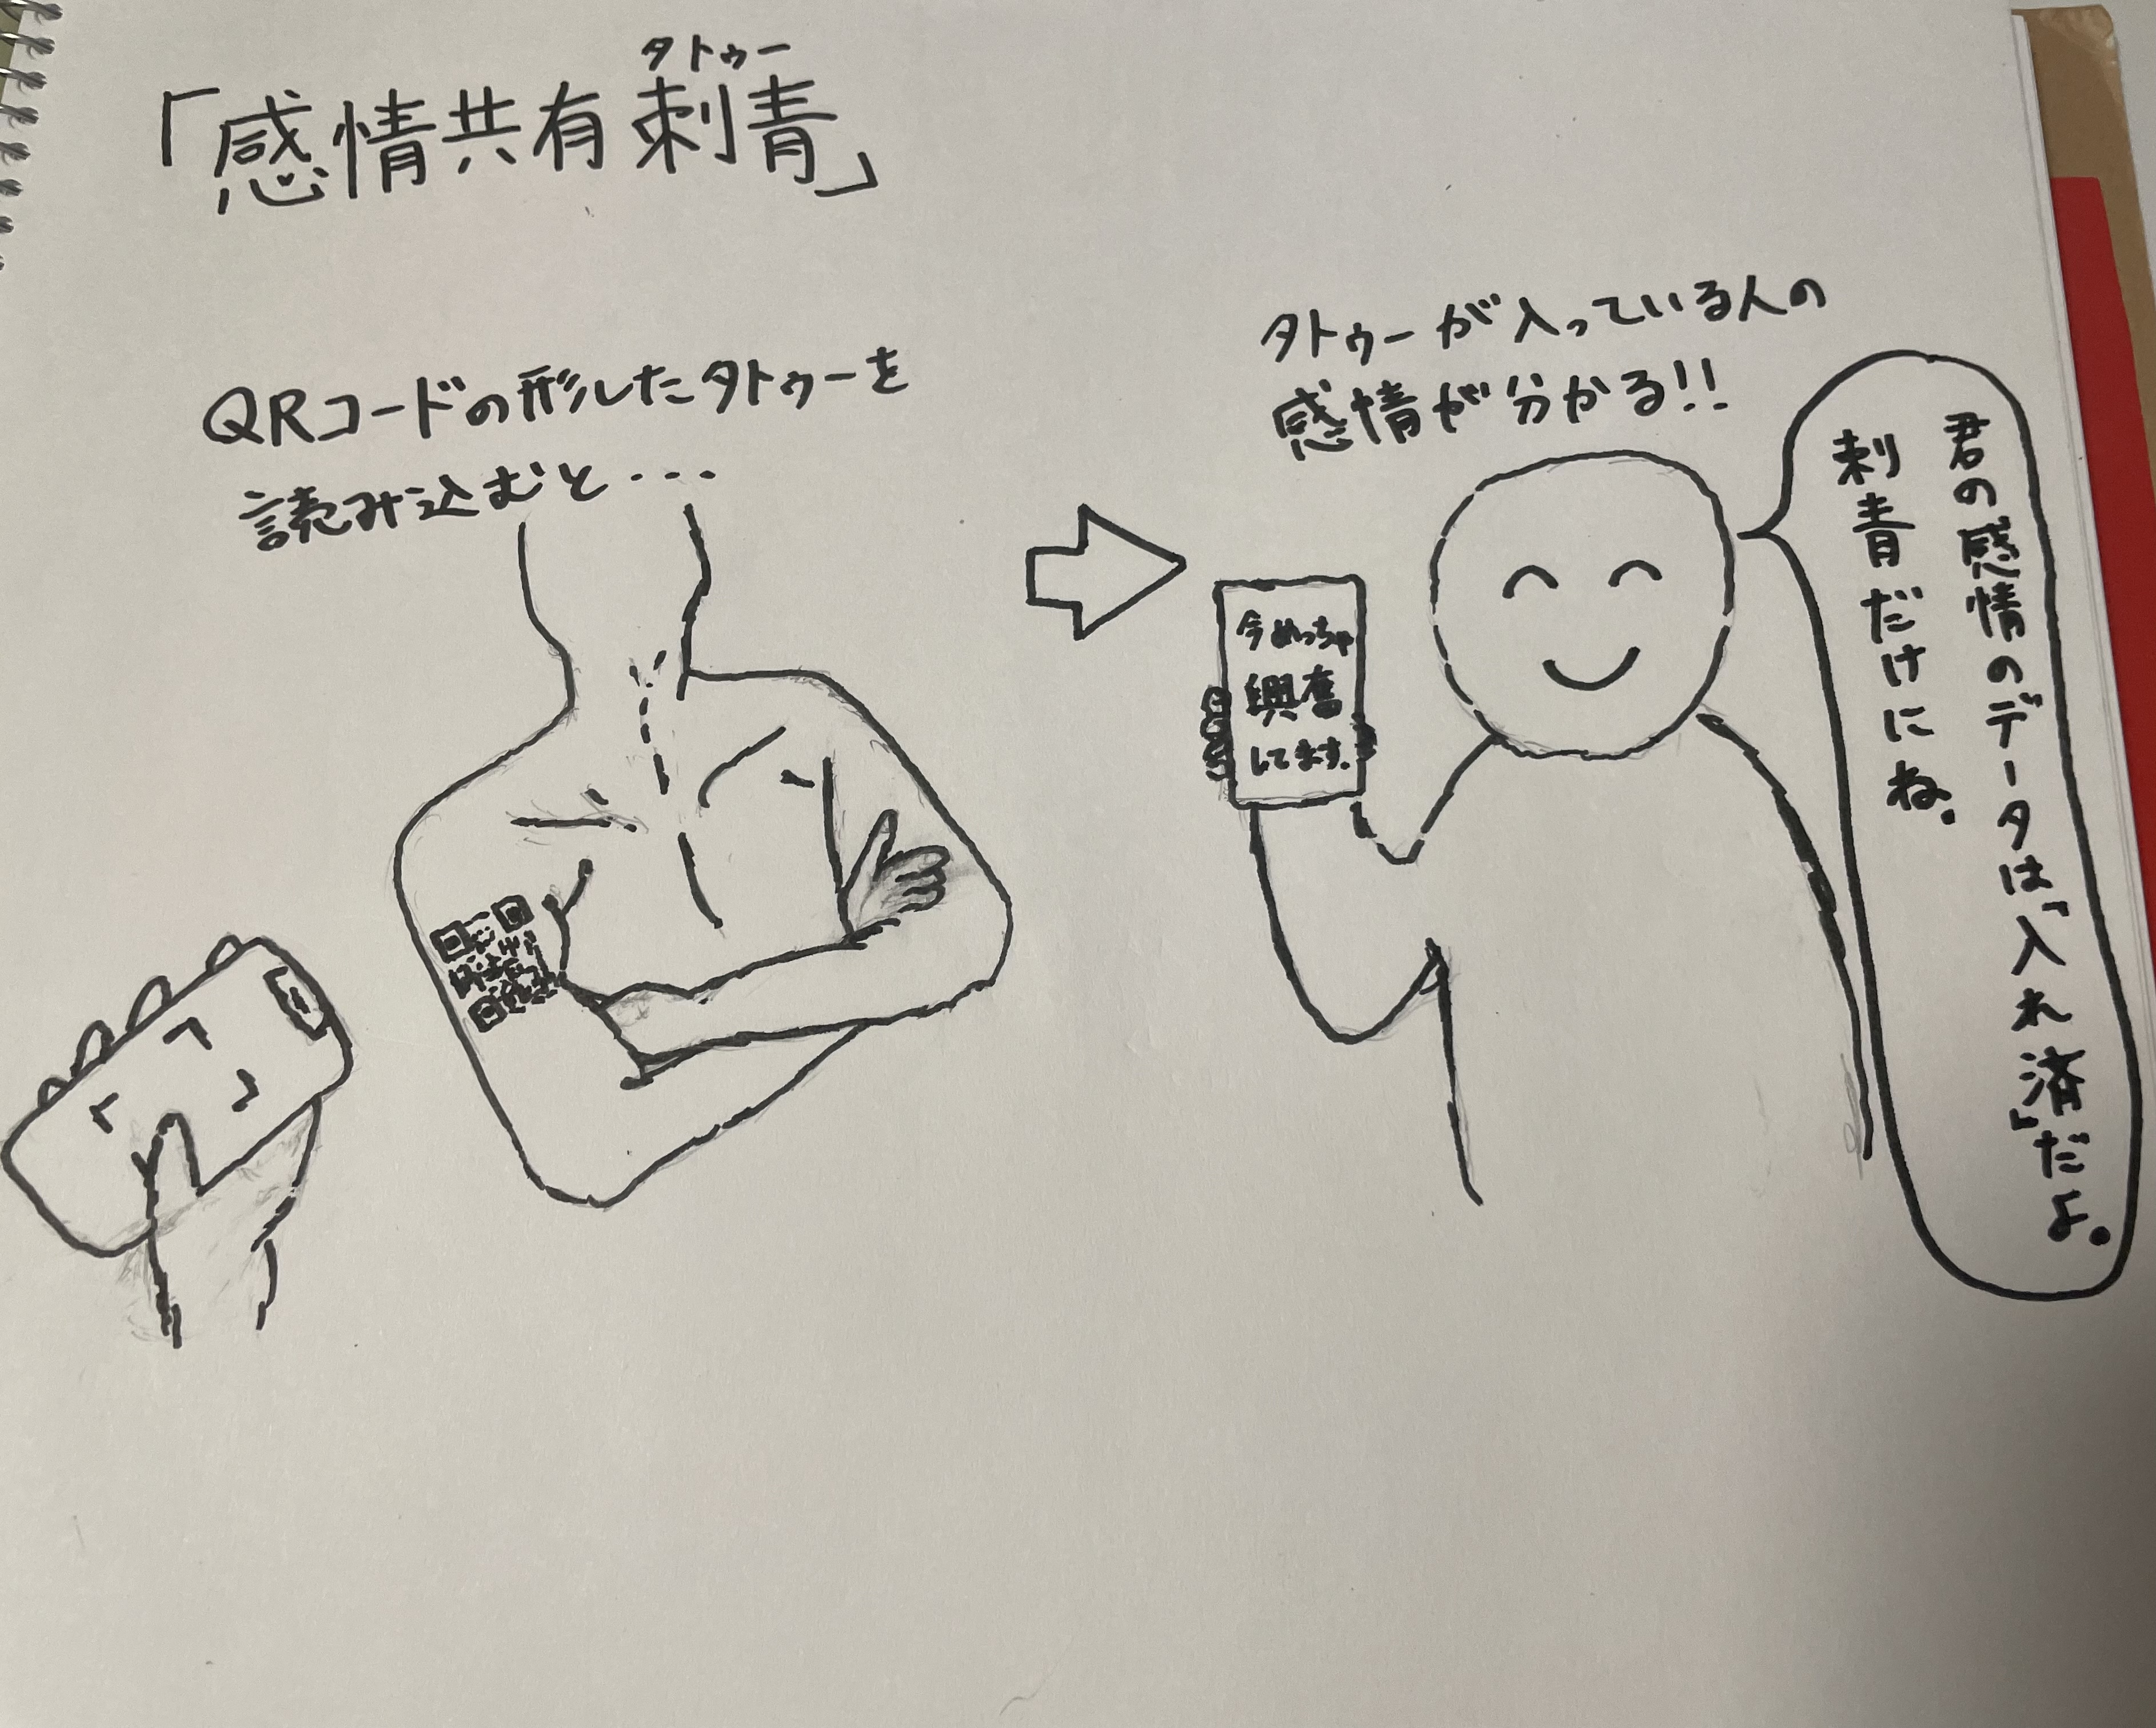 タトゥー
「感情共有刺青」
QRコードの形したタトゥーを
読み込むと・・・
タトゥーが入っている人の
感情が分かる!!
今めっちゃ
興奮
してます.
君の感情のデータは「入れ済」だよ。
刺青だけにね。